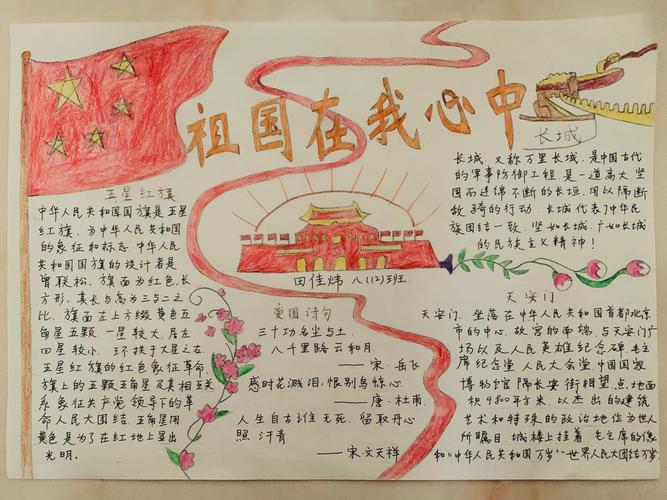 祖国在我心中
五星红旗
中华人民共和国国旗是五星
红旗，为中华人民共和国
的象征和标志.中华人民
共和国国旗的设计者是
曾联松，旗面为红色，长
方形，其长与高为三与二之
比，旗面左上方缀黄色五
角星五颗，一星较大，居左
四星较小，环拱于大星之右
五星红旗的红色象征革命，
旗上的五颗五角星及其相互关
系象征共产党领导下的革
命人民大团结.五角星用
黄色是为了在红地上显出
光明.
田佳炜 八(12)班.
爱国诗句
三十功名尘与土
八千里路云和月
——宋·岳飞
感时花溅泪，恨别鸟惊心
——唐·杜甫
人生自古谁无死，留取丹心
照汗青
——宋·文天祥
长城
长城，又称万里长城，是中国古代
的军事防御工程是一道高大坚
固而连绵不断的长垣，用以隔断
敌骑的行动，长城代表了中华民
族团结一致，坚如长城，广如长城
的民族主义精神！
天安门
天安门，坐落在中华人民共和国首都北京
市的中心，故宫的南端，与天安门广
场以及人民英雄纪念碑，毛主
席纪念堂，人民大会堂，中国国
博物馆隔长安街相望，占地面
积4800平方米，以杰出的建筑
艺术和特殊的政治地位为世人
所瞩目，城楼上挂着毛主席的像
和"中华人民共和国万岁""世界人民大团结万岁